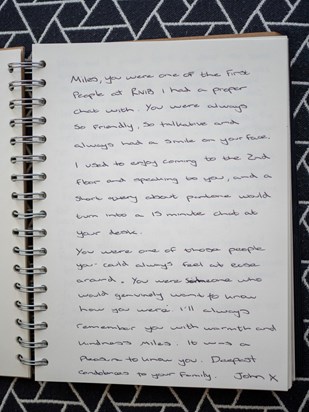 Miles, you were one of the first
People at RNIB I had a proper
chat with. You were always
so friendly, so talkative and
always had a smile on your face.
I used to enjoy coming to the 2nd
floor and speaking to you, and a
short query about pantone would
turn into a 15 minute chat at
your desk.
You were one of those people
you could always feel at ease
around. You were someone who
would genuinely want to know
how you were. I'll always
remember you with warmth and
kindness Miles. It was a
Pleasure to know you. Deepest
condolences to your family. John X